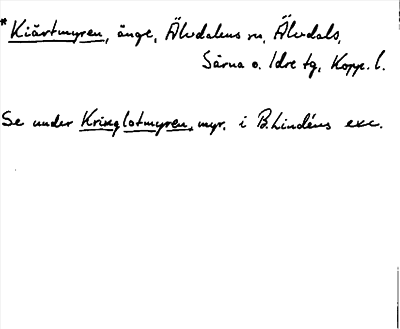 * Kiärtmyren, änge, Älvdalens sn, Älvdals,
Särna o. Idre tg, Kopp. l.
Se under Kringlotmyren, myr, i B. Lindéns exc.